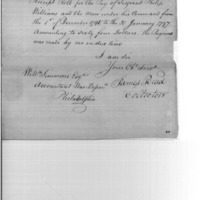 Receipt Roll for the Pay of Sergeant Philip
Williams and the Men under his Command from
the 1st of December 1796 to the 31 January 1797
Amounting to sixty four Dollars. the Signers
was made by me in due time
I am Sir
Your Ob. Servt.
Willm. Simmons Esqr.
Accountant War Depart.
Philadelphia
James Read